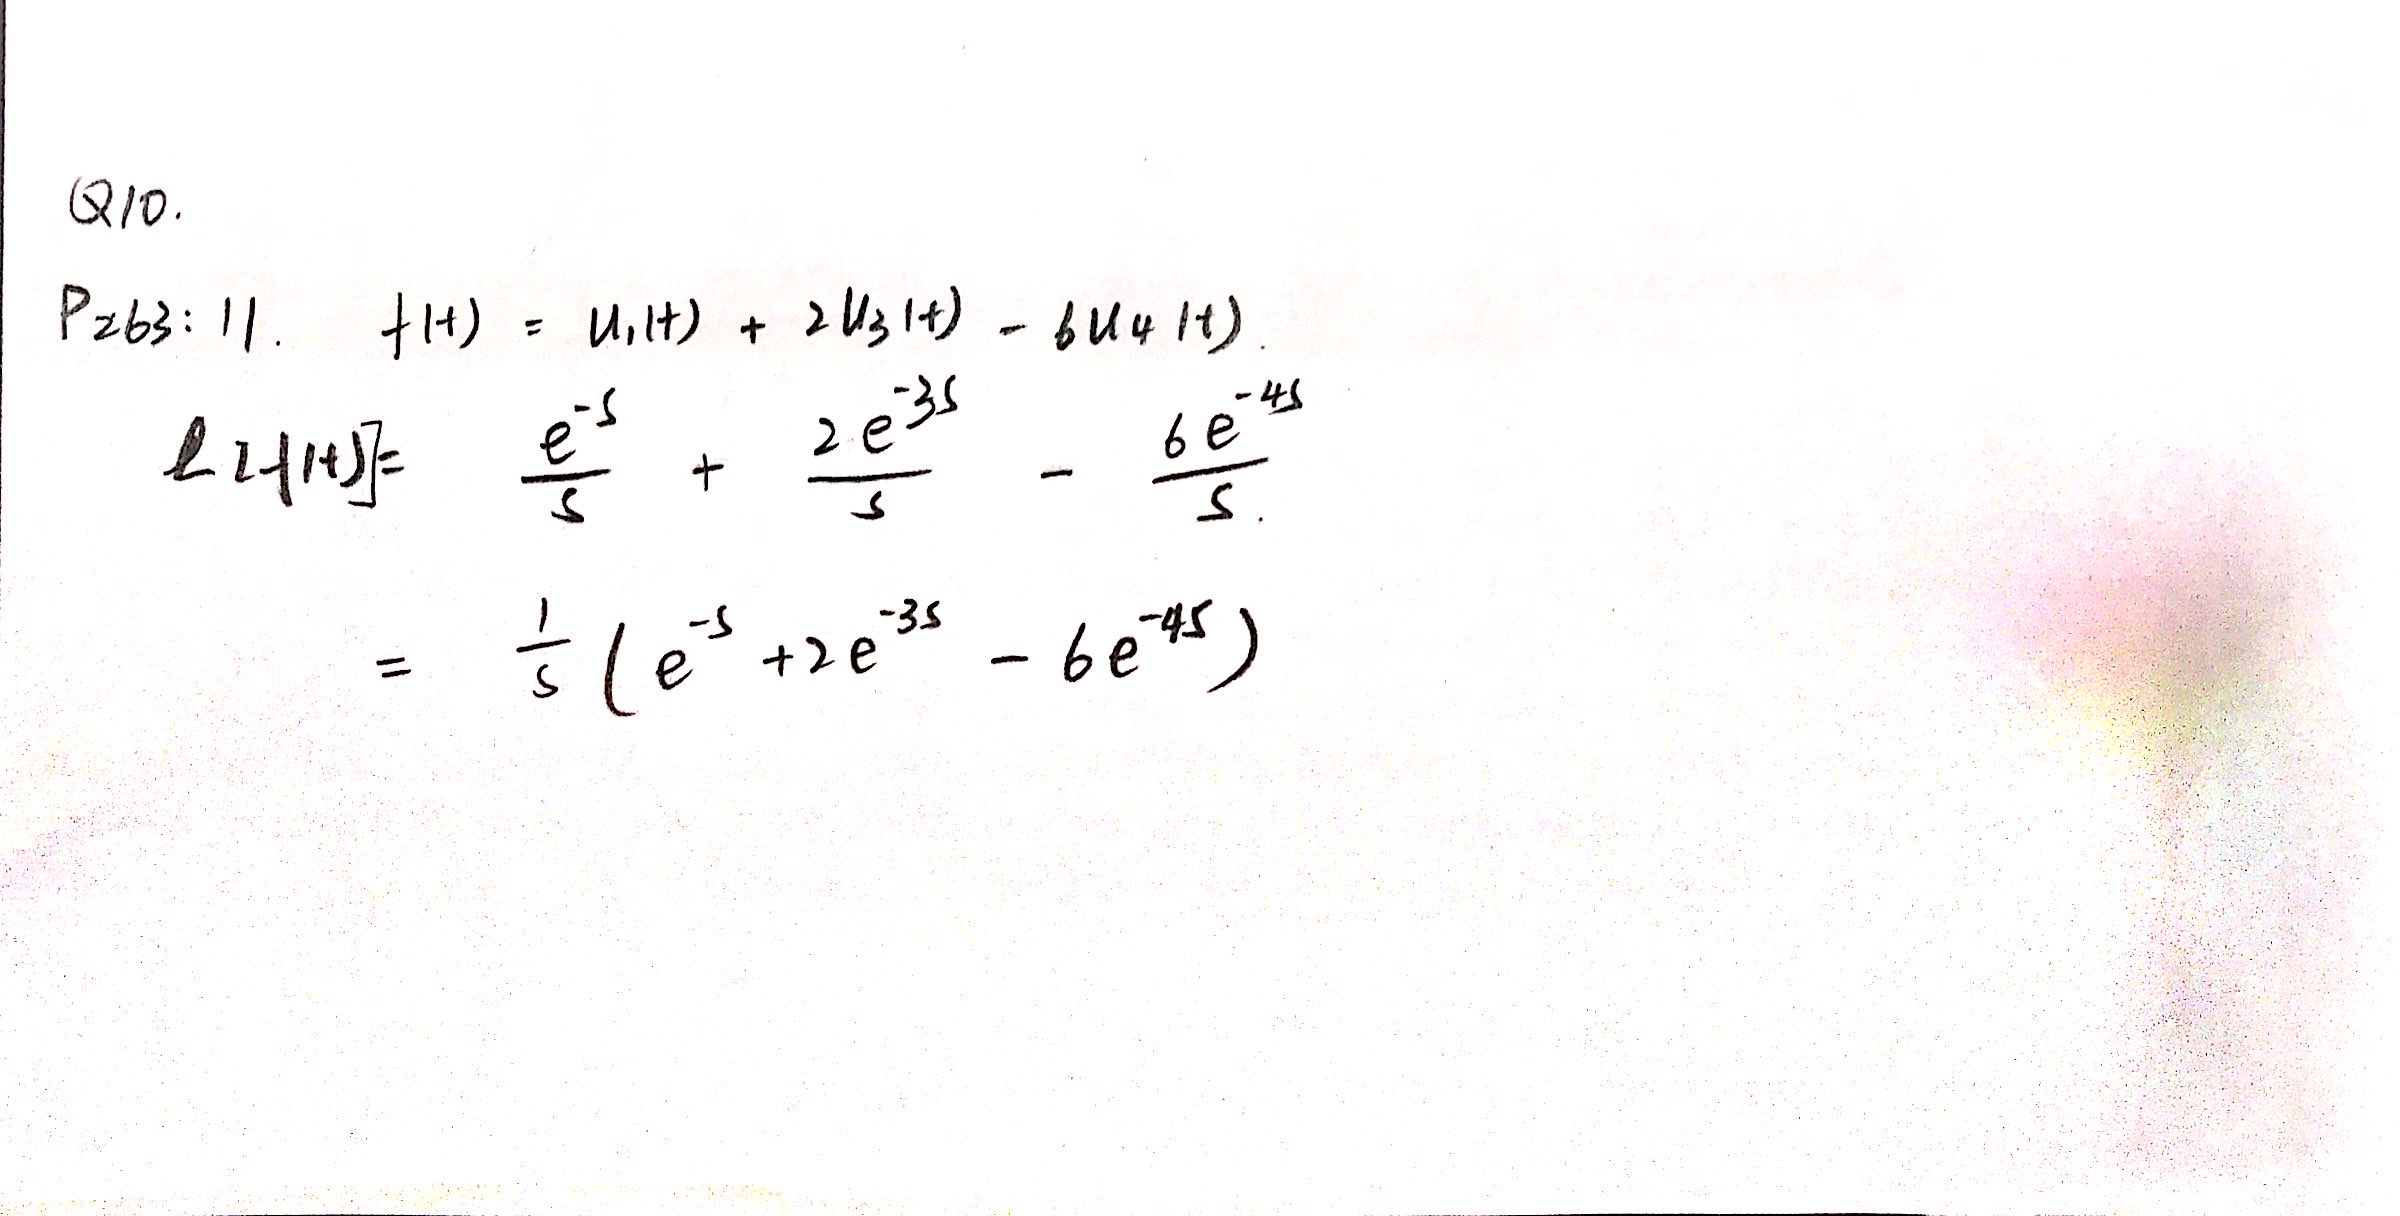 Q10.
P263: 11. f(t) = u₁(t) + 2u₃(t) - 6u₄(t).
L[f(t)] = e^{-s}/s + 2e^{-3s}/s - 6e^{-4s}/s.
= 1/s (e^{-s} + 2e^{-3s} - 6e^{-4s})